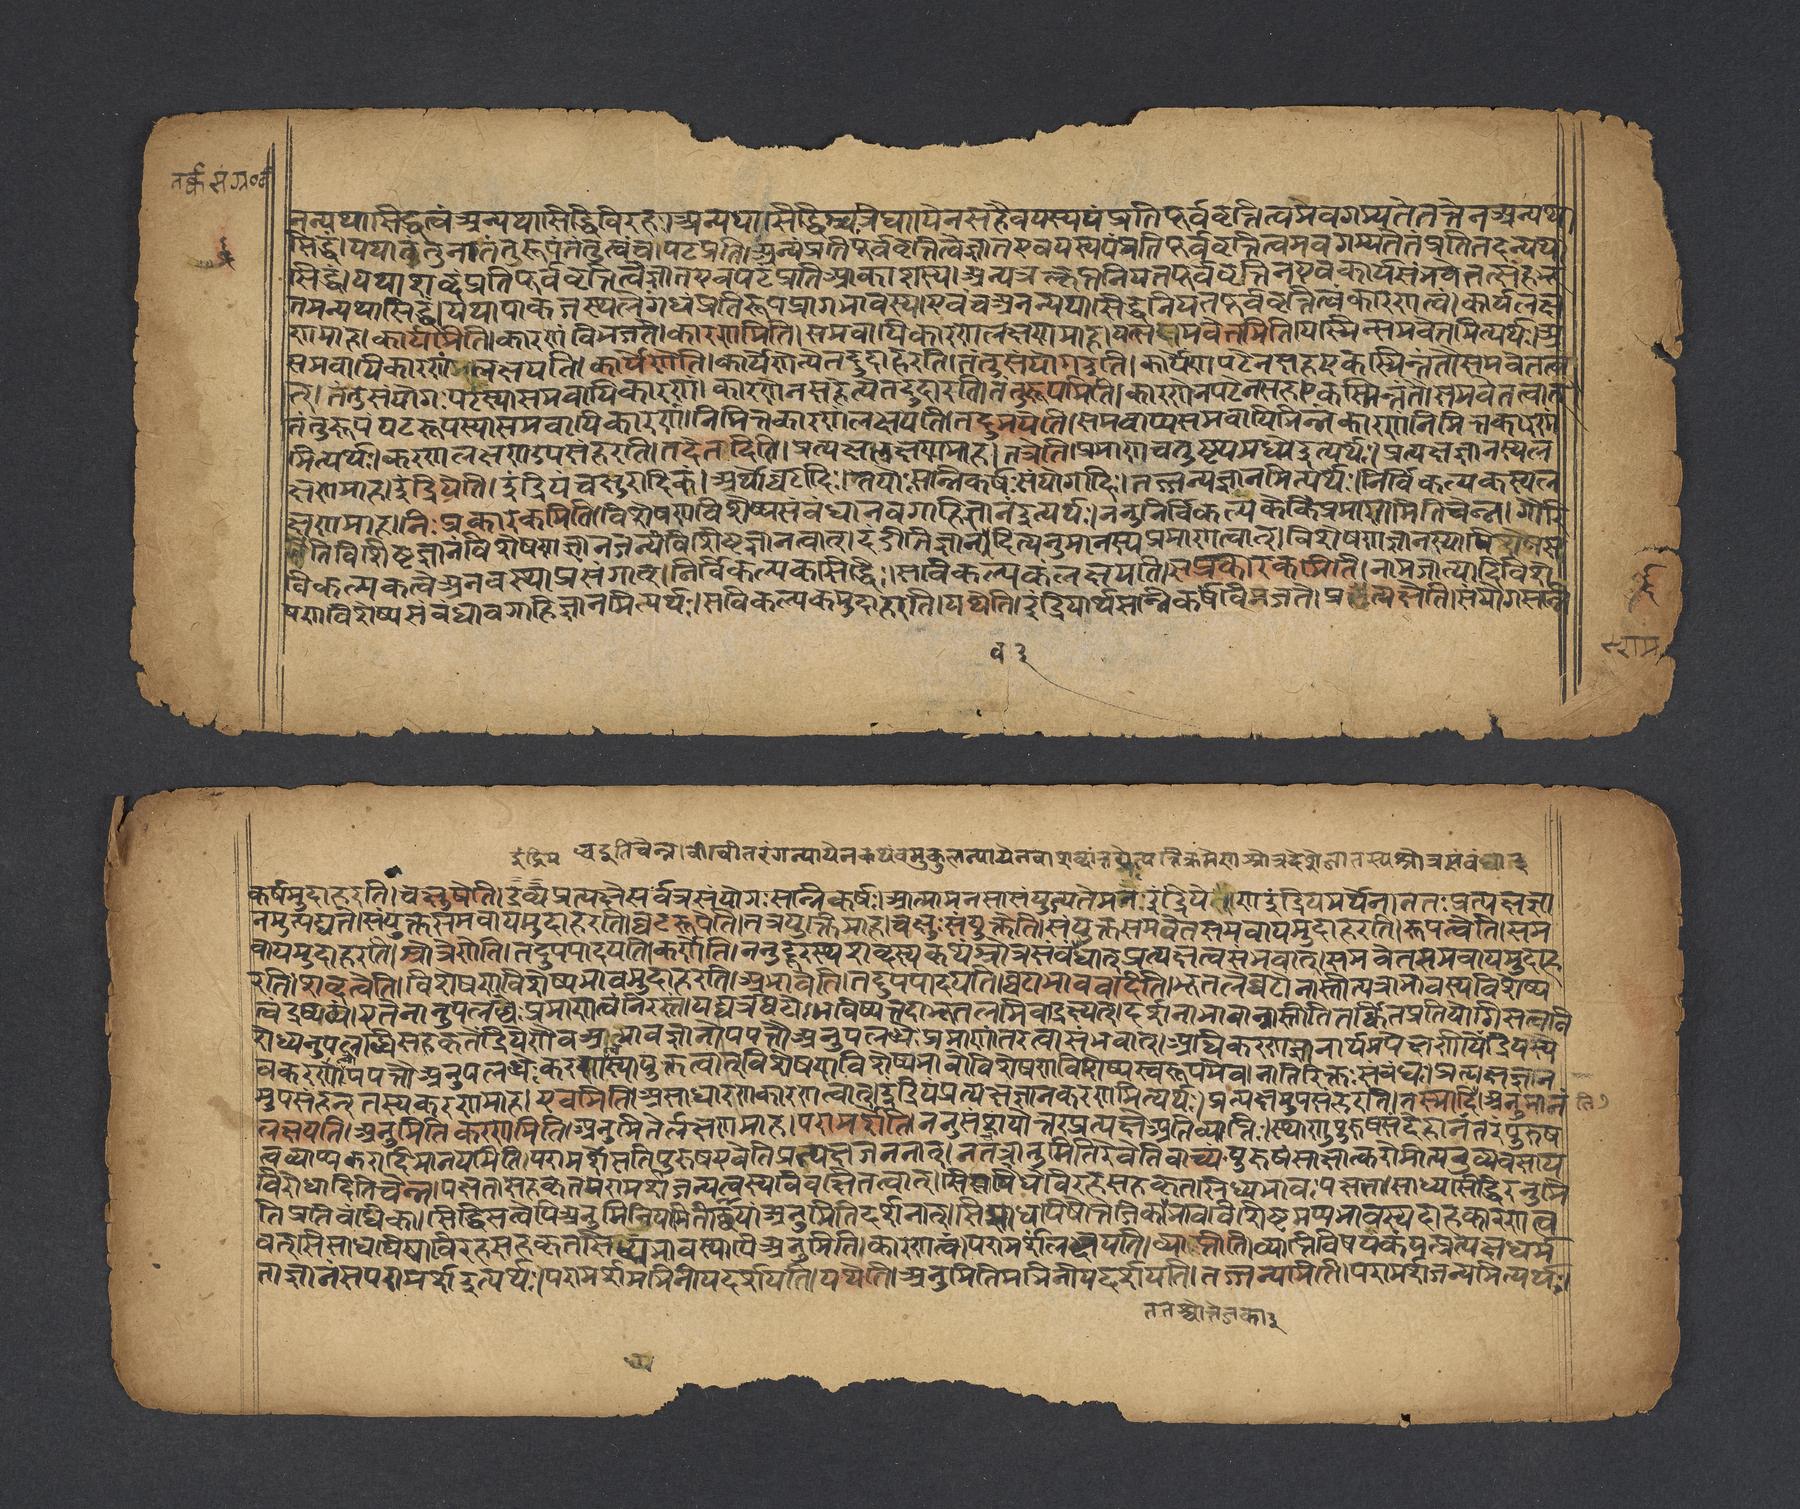 तर्कसंग्र०टी
नन्यथासिद्धत्वंअन्यथासिद्धिविरहः।अन्यथासिद्धिश्चत्रिधा।येनसहैवयस्ययंप्रतिपूर्ववृत्तित्वमवगम्यतेतत्तेनअन्यथा
सिद्धं।यथातंतुनातंतुरूपंतंतुत्वंच।पटंप्रति।अन्यंप्रतिपूर्ववृत्तित्वेज्ञातएवयस्ययंप्रतिपूर्ववृत्तित्वमवगम्यतेतंप्रतितदन्यथा
सिद्धं।यथाशब्दंप्रतिपूर्ववृत्तित्वेज्ञातएवपटंप्रतिआकाशस्य।अन्यत्रक्लृप्तनियतपूर्ववृत्तिनएवकार्यसंभवेतत्संहभू
तमन्यथासिद्धं।यथापाकजस्थलेगंधंप्रतिरूपप्रागभावस्य।एवंचअनन्यथासिद्धनियतपूर्ववृत्तित्वंकारणत्वं।कार्यलक्ष
णमाह।कार्यमिति।कारणंविभजते।कारणमिति।समवायिकारणलक्षणमाह।यत्समवेतमिति।यस्मिन्समवेतमित्यर्थः।अ
समवायिकारणंलक्षयति।कार्येणेति।कार्येणेत्येतदुदाहरति।तंतुसंयोगइति।कार्येणपटेनसहएकस्मिन्तंतौसमवेतत्वा
त्।तंतुसंयोगःपटस्यासमवायिकारणं।कारणेनसहेत्येतदुदाहरति।तंतुरूपमिति।कारणेनपटेनसह।एकस्मिन्तंतौसमवेतत्वात्
तंतुरूपंपटरूपस्यासमवायिकारणं।निमित्तकारणंलक्षयति।तदुभयेति।समवाय्यसमवायिभिन्नकारणंनिमित्तकारण
मित्यर्थः।करणलक्षणमुपसंहरति।तदेतदिति।प्रत्यक्षलक्षणमाह।तत्रेति।प्रमाणचतुष्टयमध्येइत्यर्थः।प्रत्यक्षज्ञानस्यल
क्षणमाह।इंद्रियेति।इंद्रियंचक्षुरादिकं।अर्थोघटादिः।तयोःसन्निकर्षःसंयोगादिः।तज्जन्यज्ञानमित्यर्थः।निर्विकल्पकस्यल
क्षणमाह।निःप्रकारकमिति।विशेषणविशेष्यसंबंधानवगाहिज्ञानंइत्यर्थः।ननुनिर्विकल्पकेकिंप्रमाणमितिचेन्न।गौरि
तिविशिष्टज्ञानंविशेषणज्ञानजन्यंविशिष्टज्ञानत्वात्।दंडीतिज्ञानवदित्यनुमानस्यप्रमाणत्वात्।विशेषणज्ञानस्यापिस
विकल्पकत्वेअनवस्थाप्रसंगात्।निर्विकल्पकसिद्धिः।सविकल्पकंलक्षयति।सप्रकारकमिति।नामजात्यादिविशे
षणविशेष्यसंबंधावगाहिज्ञानमित्यर्थः।सविकल्पकमुदाहरति।यथेति।इंद्रियार्थसन्निकर्षंविभजते।प्रत्यक्षेति।संयोगसन्नि
राम
इंद्रिय
कर्षमुदाहरति।चक्षुषेति।द्रव्यप्रत्यक्षेसर्वत्रसंयोगःसन्निकर्षः।आत्मामनसासंयुज्यतेमनःइंद्रियेणइंद्रियमर्थेन।ततःप्रत्यक्षज्ञा
नमुत्पद्यते।संयुक्तसमवायमुदाहरति।घटरूपेति।तत्रयुक्तिमाह।चक्षुःसंयुक्तेति।संयुक्तसमवेतसमवायमुदाहरति।रूपत्वेति।सम
वायमुदाहरति।श्रोत्रेणेति।तदुपपादयति।कर्णेति।ननुदूरस्थशब्दस्यकथंश्रोत्रसंबंधात्प्रत्यक्षत्वसंभवात्।समवेतसमवायमुदाह
रति।शब्दत्वेति।विशेषणविशेष्यभावमुदाहरति।अभावेति।तदुपपादयति।घटाभाववदिति।भूतलेघटोनास्तीत्यत्राभावस्यविशेष्य
त्वंद्रष्टव्यं।एतेनानुपलब्धेःप्रमाणत्वंनिरस्तं।यद्यत्रघटोऽभविष्यत्तदाभूतलमिवाद्रक्ष्यत्।दर्शनाभावान्नास्तीतितर्कितप्रतियोगिसत्ववि
रोध्यनुपलब्धिसहकृतेंद्रियेणैवअभावज्ञानोपपत्तौअनुपलब्धेःप्रमाणांतरत्वासंभवात्।अधिकरणज्ञानार्थमपेक्षणीयेंद्रियस्यै
वकरणत्वोपपत्तौअनुपलब्धेःकरणत्वस्यायुक्तत्वात्।विशेषणविशेष्यभावोविशेषणविशेष्यस्वरूपमेव।नातिरिक्तःसंबंधः।प्रत्यक्षज्ञान
मुपसंहरन्तस्यकरणमाह।एवमिति।असाधारणकारणत्वात्।इंद्रियंप्रत्यक्षज्ञानकरणमित्यर्थः।प्रत्यक्षमुपसंहरति।तस्मादिति।अनुमानं
लक्षयति।अनुमितिकरणमिति।अनुमितेर्लक्षणमाह।परामर्शेति।ननुसंशयोत्तरप्रत्यक्षेअतिव्याप्तिः।स्थाणुपुरुषसंदेहानंतरंपुरुष
त्वव्याप्यकरादिमानयमिति।परामर्शेसतिपुरुषएवेतिप्रत्यक्षजननात्।नतत्रानुमितिरेवेतिवाच्यं।पुरुषंसाक्षात्करोमीत्यनुव्यवसाय
विरोधादितिचेन्न।पक्षतासहकृतपरामर्शजन्यत्वस्यविवक्षितत्वात्।सिषाधयिषाविरहसहकृतसिध्यभावःपक्षता।साध्यसिद्धिरनुमि
तिप्रतिबंधिका।सिद्धिसत्वेपिअनुमिनुयामितीच्छायांअनुमितिदर्शनात्।सिषाधयिषोत्तेजिका।भावविशिष्टमण्यभावस्यदाहकारणत्व
वत्।सिसाधयिषाविरहसहकृतसिध्यभावस्यापिअनुमिति।कारणत्वं।परामर्शंलक्षयति।व्याप्तीति।व्याप्तिविषयकंयत्प्रत्यक्षधर्म
ताज्ञानंसपरामर्शइत्यर्थः।परामर्शमभिनीयदर्शयति।यथेति।अनुमितिमभिनीयदर्शयति।तज्जन्यमिति।परामर्शजन्यमित्यर्थः।